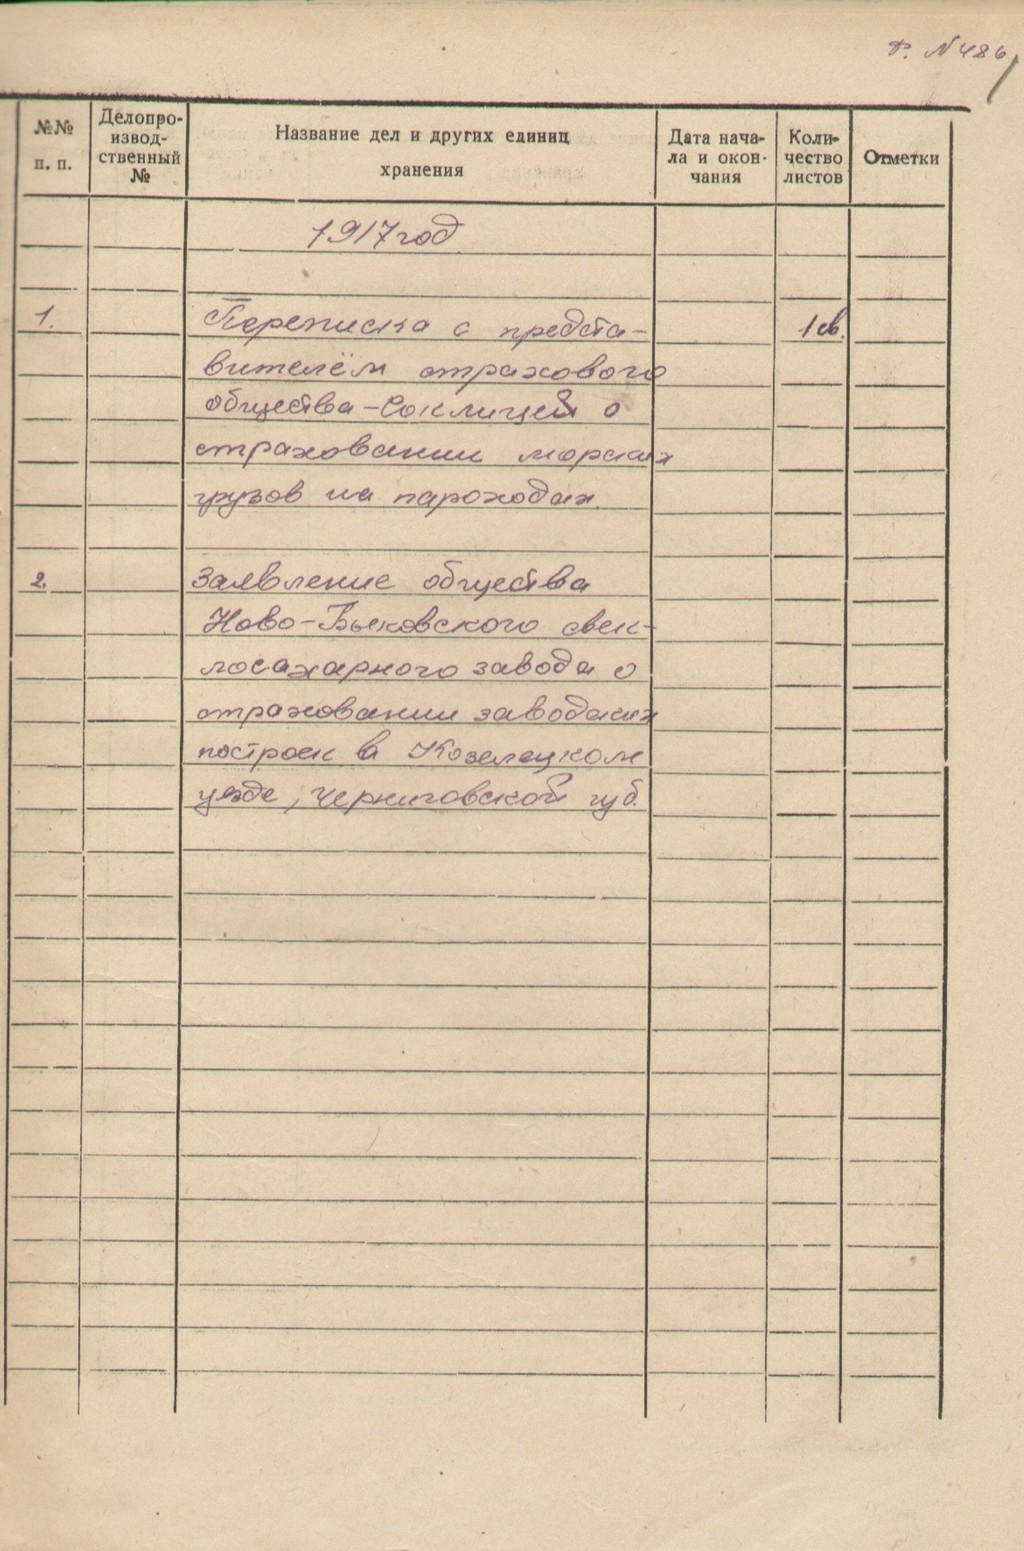 Ф. №486
№№ п. п.
Делопро-
извод-
ственный
№
Название дел и других единиц
хранения
Дата нача-
ла и окон-
чания
Коли-
чество
листов
Отметки
1917 год
1. Переписка с предста- 1 св.
вителем страхового
общества - о
страховании морских
грузов на пароходах.
2. Заявление общества
Ново-Быковского свек-
лосахарного завода о
страховании заводских
построек в Козелецком
уезде, Черниговской губ.